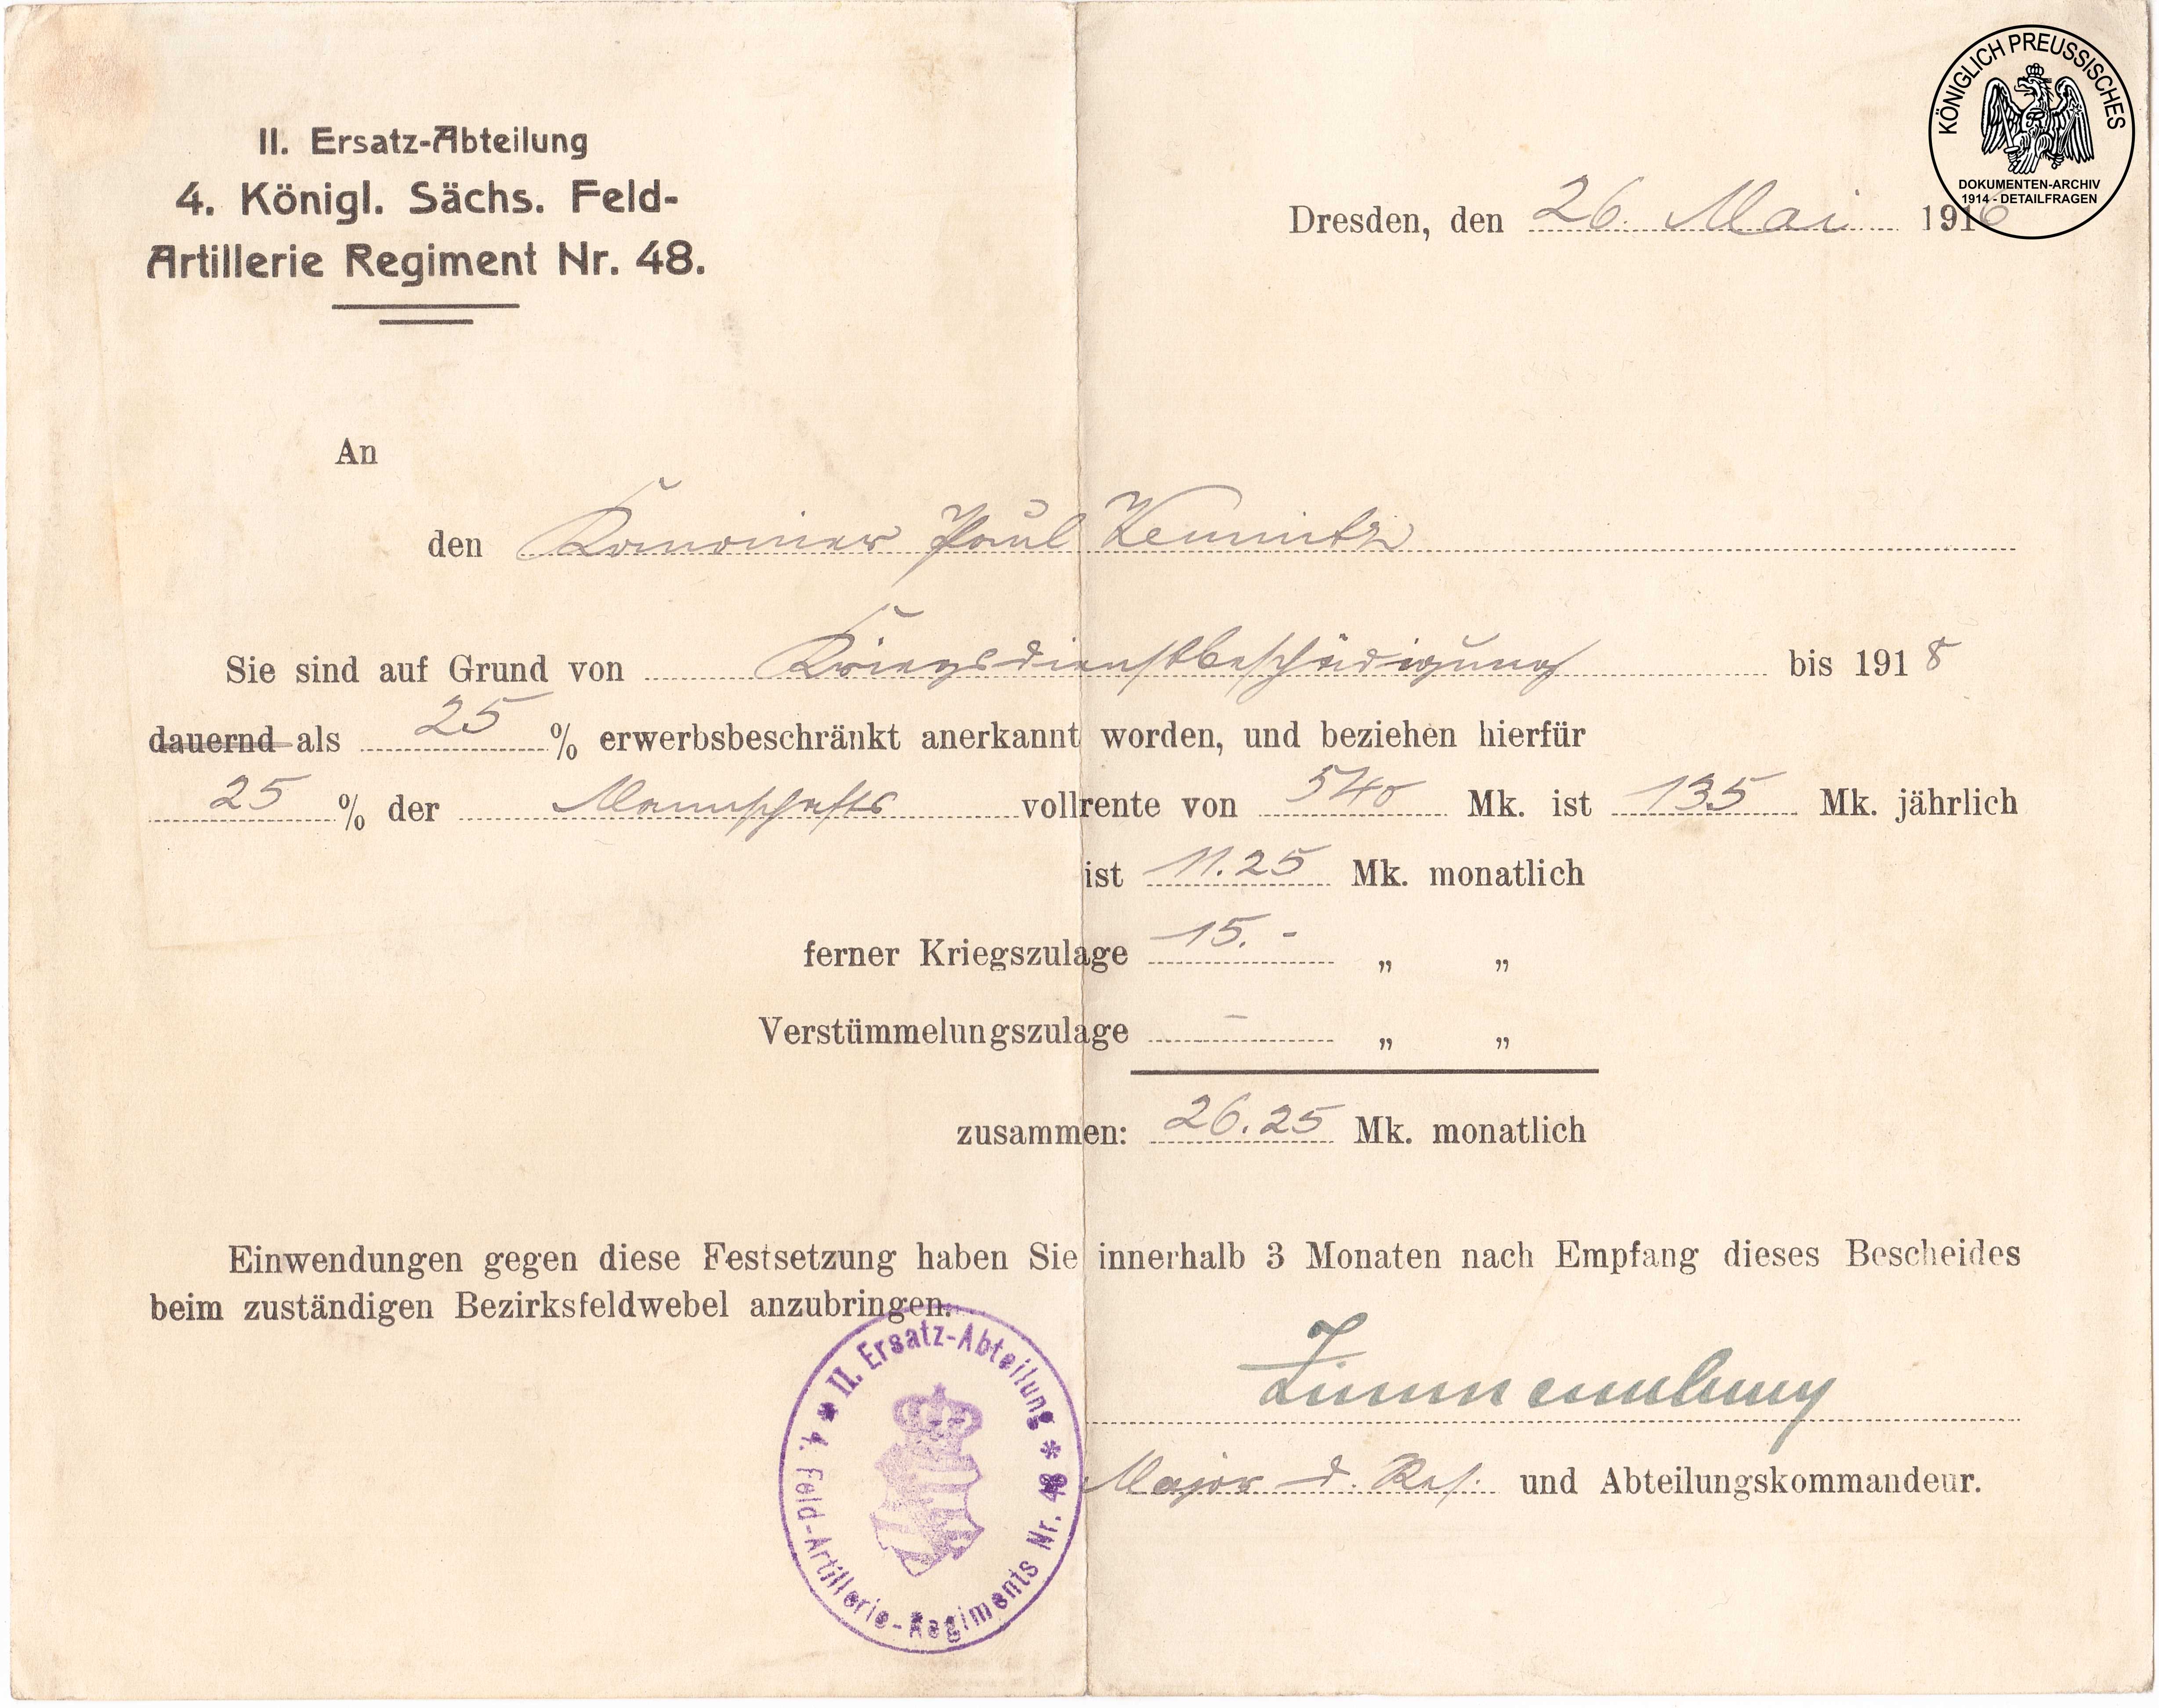 KÖNIGLICH PREUSSISCHES
DOKUMENTEN-ARCHIV
1914 - DETAILFRAGEN
II. Ersatz-Abteilung
4. Königl. Sächs. Feld-
Artillerie Regiment Nr. 48.
Dresden, den 26. Mai 1916
An
den Kanonier Paul Kemnitz
Sie sind auf Grund von Kriegsdienstbeschädigung bis 1918
dauernd als 25 % erwerbsbeschränkt anerkannt worden, und beziehen hierfür
25 % der Mannschafts vollrente von 540 Mk. ist 135 Mk. jährlich
ist 11.25 Mk. monatlich
ferner Kriegszulage 15.- „ „
Verstümmelungszulage – „ „
zusammen: 26.25 Mk. monatlich
Einwendungen gegen diese Festsetzung haben Sie innerhalb 3 Monaten nach Empfang dieses Bescheides
beim zuständigen Bezirksfeldwebel anzubringen.
Major d. Res. und Abteilungskommandeur.
* II. Ersatz-Abteilung *
4. Feld-Artillerie-Regiments Nr. 48